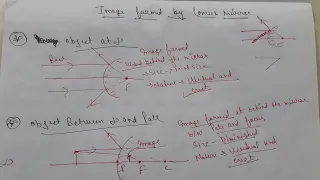 Image formed by Convex Mirror
object at ∞
Image formed
behind the mirror
→ Size → Point size
→ Nature → Virtual and
erect
F
object Between ∞ and pole
Image
Image formed at behind the mirror
b/w Pole and focus
Size → Diminished
Nature → Virtual and
erect
P
F
C